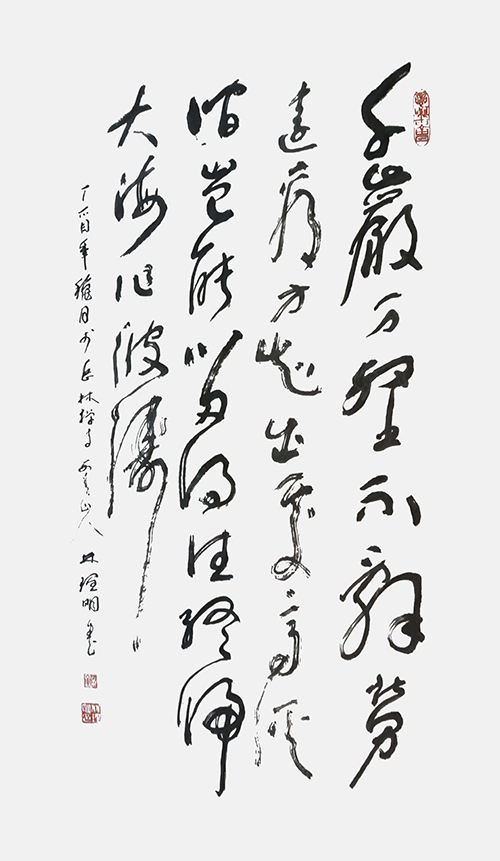 千巖万壑不辭勞
遠看方知出處高溪
澗豈能留得住終歸
大海作波濤
丁酉年穐月於岳林禅寺 山人 林 明書